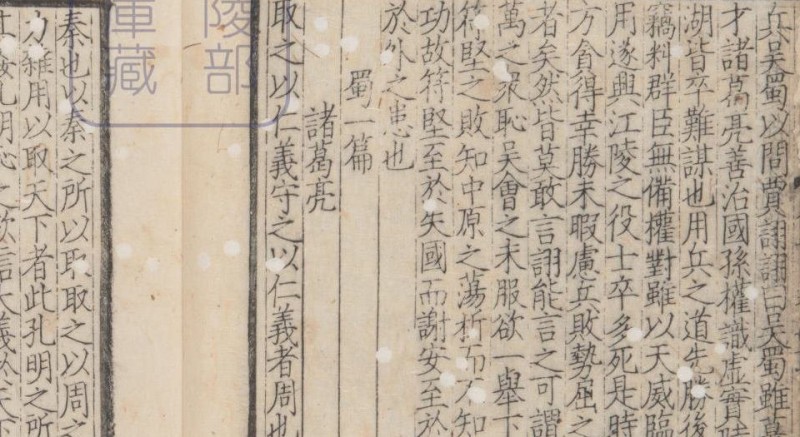 兵吳蜀以問賈詡詡曰吳蜀雖蕞
才諸葛亮善治國孫權識虛實陸
湖皆卒難謀也用兵之道先勝後
竊料群臣無備權對雖以天威臨
用遂興江陵之役士卒多死是時
方貪得幸勝未暇慮兵敗勢屈之
者矣然皆莫敢言詡能言之可謂
萬之衆恥吳會之未服欲一舉下
符堅之敗知中原之蕩析而不知
功故符堅至於失國而謝安至於
於外之患也
蜀一篇
諸葛亮
取之以仁義守之以仁義者周也
秦也以秦之所以取取之以周之
力雜用以取天下者此孔明之所
孔明心之欲信大義於天下
庫藏
陵部